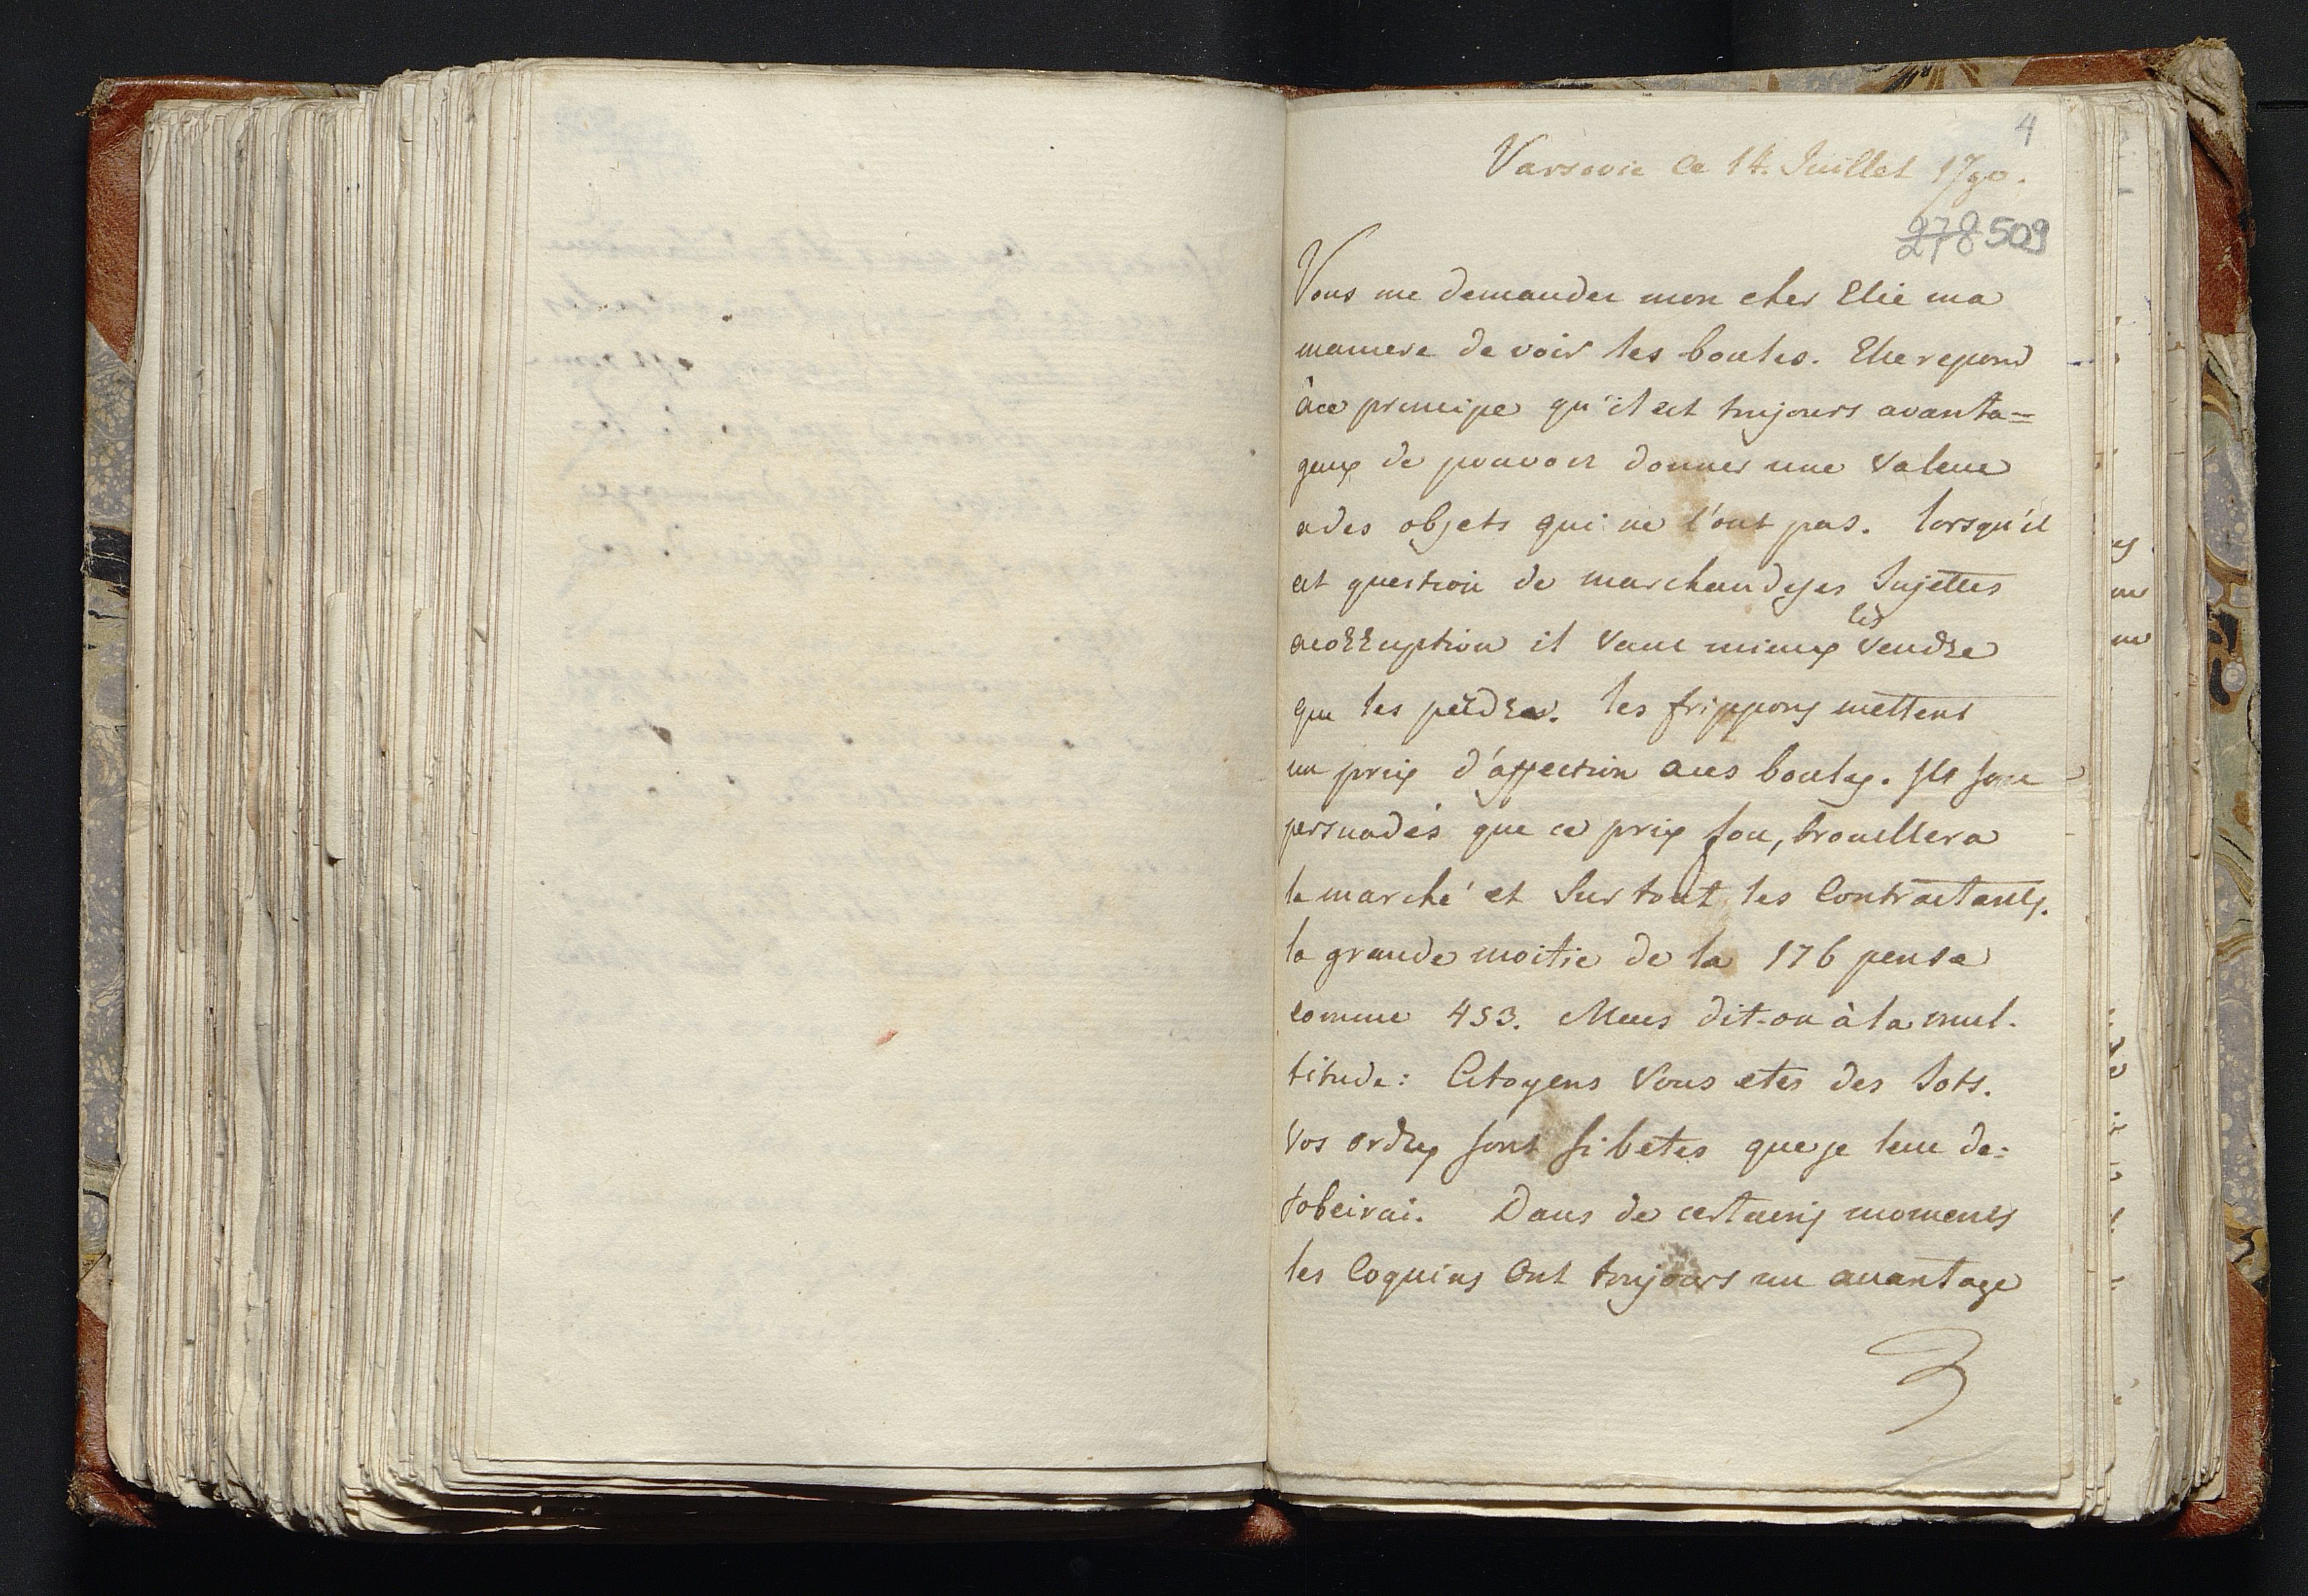 4
Varsovie le 14. Juillet 1790.
278 509
Vous me demandez mon cher Elie ma
maniere de voir les boules. Elle repond
à ce principe qu'il est toujours avanta=
geux de pouvoir donner une valeur
a des objets qui ne l'ont pas. lorsqu'il
est question de marchandyses Sujettes
a corruption il vaut mieux les vendre
que les perdre. les frippons mettent
un prix d'affection a ces boules. Ils sont
persuadés que ce prix fou, brouillera
le marché et Sur tout les Contractants.
la grande moitie de la 176 pense
comme 453. Mais dit-on à la mul-
titude: Citoyens Vous etes des Sots.
Vos ordres sont si betes que je leur de=
sobeirai. Dans de certains moments
les Coquins Ont toujours un avantage